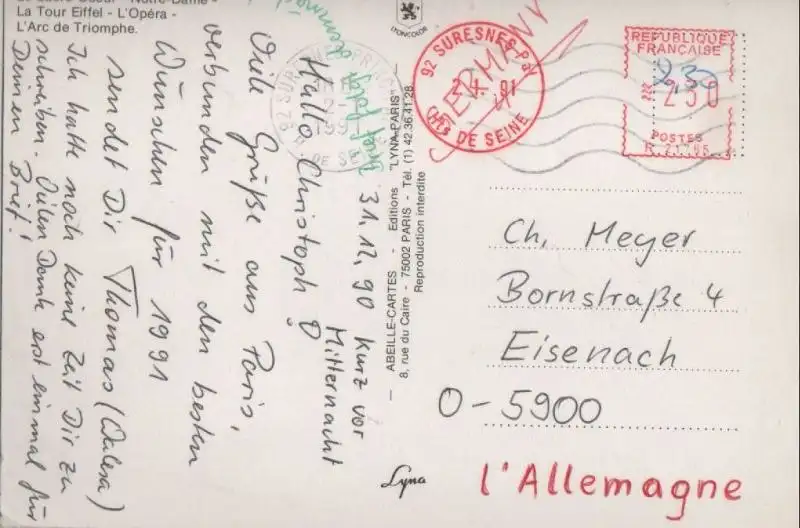 La Tour Eiffel - L'Opéra -
L'Arc de Triomphe.
LYONCORDE
31.12.90 kurz vor
Mitternacht
Hallo Christoph!
Viele Grüße aus Paris,
verbunden mit den besten
Wünschen für 1991
sendet Dir Thomas
Ich hatte noch keine Zeit Dir zu
schreiben. Vielen Dank erst einmal für
Deinen Brief!
ABEILLE-CARTES - Editions "LYNA-PARIS"
8, rue du Caire - 75002 PARIS - Tél. (1) 42.36.41.28
Reproduction interdite
Lyna
92 SURESNES-Pal
91
HTS DE SEINE
GERMANY
REPUBLIQUE
FRANÇAISE
2,30
230
POSTES
Ch. Meyer
Bornstraße 4
Eisenach
O-5900
l'Allemagne